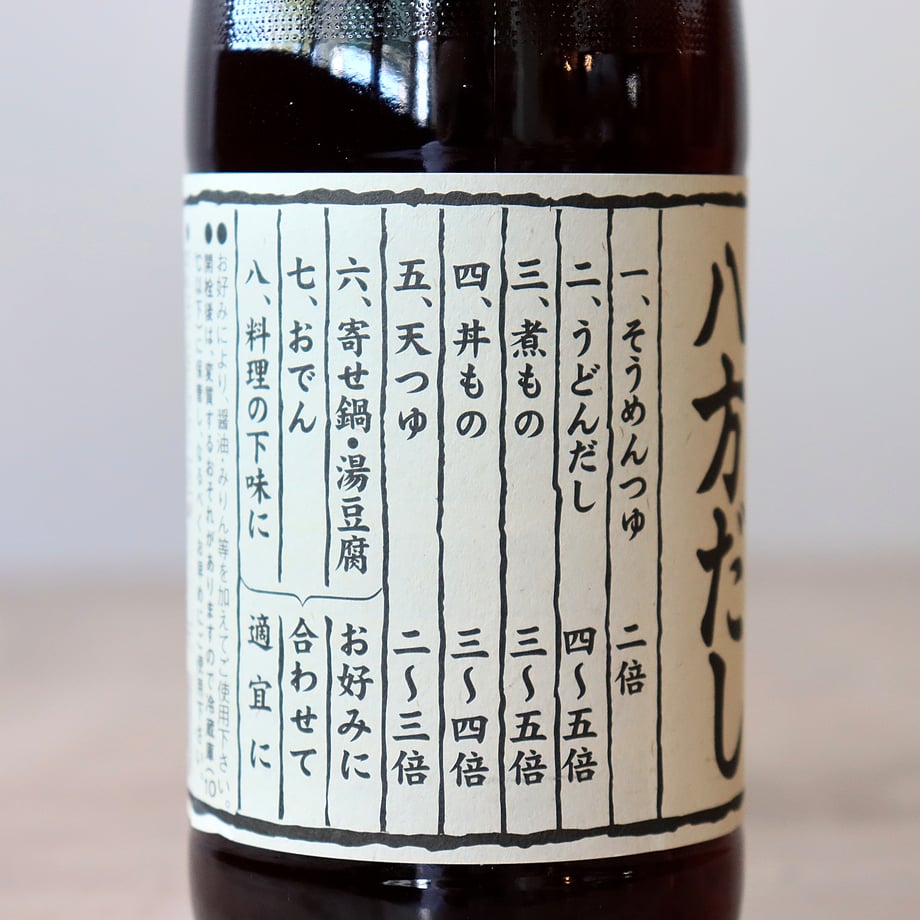 八方だし
一、そうめんつゆ 二倍
二、うどんだし 四〜五倍
三、煮もの 三〜五倍
四、丼もの 三〜四倍
五、天つゆ 二〜三倍
六、寄せ鍋・湯豆腐 お好みに
七、おでん 合わせて
八、料理の下味に 適宜に
●お好みにより、醤油・みりん等を加えてご使用下さい。
●開栓後は、変質するおそれがありますので冷蔵庫(10
℃以下)に保管し、なるべくお早めにご使用下さい。